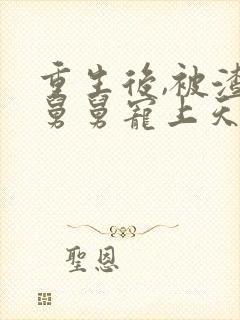 重生後,被渣
舅舅寵上天
聖恩